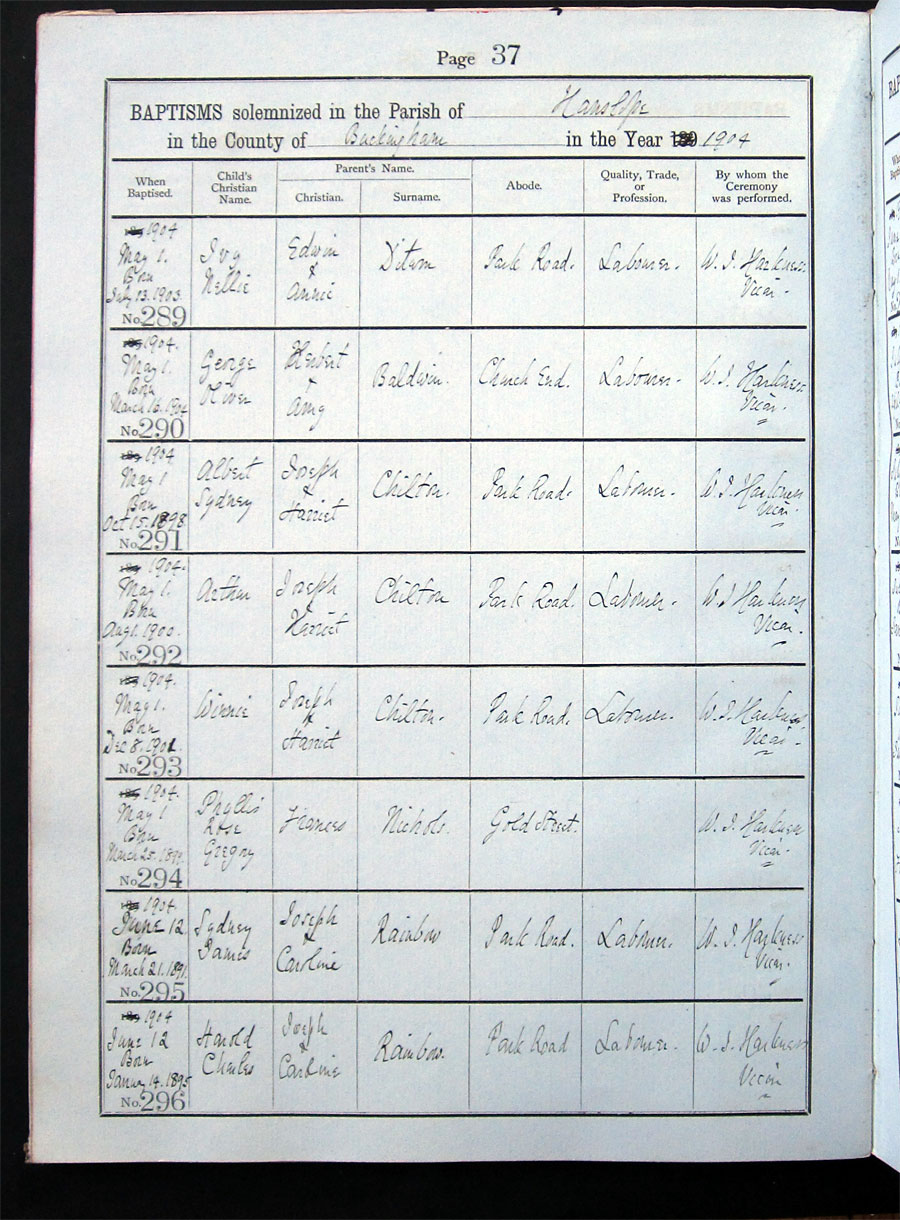 Page 37
BAPTISMS solemnized in the Parish of Hanslope
in the County of Buckingham in the Year 189 1904
When Baptised. Child's Christian Name. Parent's Name. Christian. Surname. Abode. Quality, Trade, or Profession. By whom the Ceremony was performed.
189 1904
May 1. Ivy Edwin Park Road. Labourer. W. J. Harkness
Born Nellie & Vicar.
July 13. 1903. Annie
No. 289
189 1904.
May 1. George Herbert Baldwin. Church End. Labourer. W. J. Harkness
Born Oliver & Vicar.
March 16. 1904 Amy
No. 290
189 1904
May 1 Albert Joseph Chilton. Park Road. Labourer. W. J. Harkness
Born Sydney & Vicar.
Oct 15. 1898 Harriet
No. 291
189 1904.
May 1. Arthur Joseph Chilton Park Road. Labourer. W. J. Harkness
Born & Vicar.
Aug 1. 1900. Harriet
No. 292
189 1904.
May 1. Winnie Joseph Chilton. Park Road. Labourer. W. J. Harkness
Born & Vicar.
Dec 8. Harriet
No. 293
189 1904.
May 1 Phyllis Frances Nichols. Gold Street. W. J. Harkness
Born Rose Vicar.
March 25. Gregory
No. 294
189 1904.
June 12 Sydney Joseph Rainbow Park Road. Labourer. W. J. Harkness
Born James & Vicar.
March 21. Caroline
No. 295
189 1904
June 12 Harold Joseph Rainbow. Park Road Labourer. W. J. Harkness
Born Charles & Vicar
January 14. 1895 Caroline
No. 296